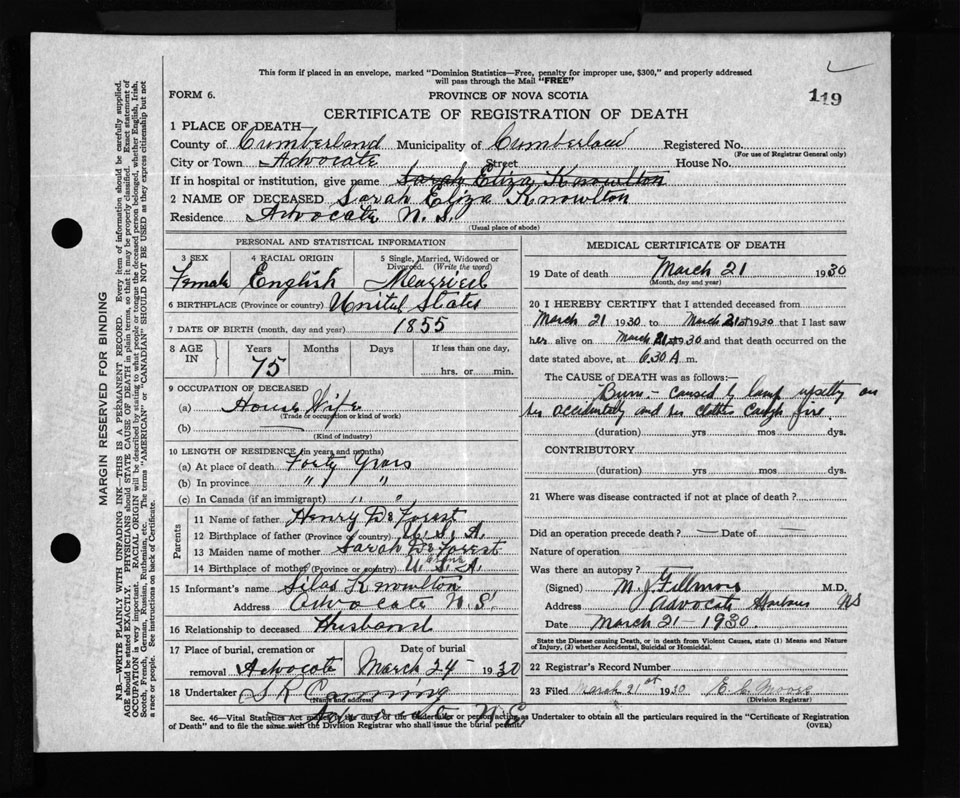 This form if placed in an envelope, marked "Dominion Statistics—Free, penalty for improper use, $300," and properly addressed
will pass through the Mail "FREE"
FORM 6. PROVINCE OF NOVA SCOTIA 119
CERTIFICATE OF REGISTRATION OF DEATH
1 PLACE OF DEATH—
County of Cumberland Municipality of Cumberland Registered No.
(For use of Registrar General only)
City or Town Advocate Street House No.
If in hospital or institution, give name Sarah Eliza Knowlton
2 NAME OF DECEASED Sarah Eliza Knowlton
Residence Advocate N. S.
(Usual place of abode)
PERSONAL AND STATISTICAL INFORMATION
3 SEX 4 RACIAL ORIGIN 5 Single, Married, Widowed or
Divorced. (Write the word)
Female English Married
6 BIRTHPLACE (Province or country) United States
7 DATE OF BIRTH (month, day and year) 1855
8 AGE IN Years Months Days If less than one day,
75 hrs. or min.
9 OCCUPATION OF DECEASED
(a) House Wife
(Trade or occupation or kind of work)
(b) —
(Kind of industry)
10 LENGTH OF RESIDENCE (in years and months)
(a) At place of death Forty Years
(b) In province " "
(c) In Canada (if an immigrant) " "
Parents
11 Name of father Henry De Forest
12 Birthplace of father (Province or country) U. S. A.
13 Maiden name of mother Sarah De Forest
14 Birthplace of mother (Province or country) U. S. A.
15 Informant's name Silas Knowlton
Address Advocate N. S.
16 Relationship to deceased Husband
17 Place of burial, cremation or Date of burial
removal Advocate March 24 - 1930
18 Undertaker
(Name and address)
Advocate N. S.
MEDICAL CERTIFICATE OF DEATH
19 Date of death March 21 1930
(Month, day and year)
20 I HEREBY CERTIFY that I attended deceased from
March 21 1930 to March 21st 1930 that I last saw
her alive on March 21st 1930 and that death occurred on the
date stated above, at 6.30 A m.
The CAUSE of DEATH was as follows:—
Burn - caused by lamp upsetting on
her accidently and her clothes caught fire.
(duration) yrs mos dys.
CONTRIBUTORY
(duration) yrs. mos. dys.
21 Where was disease contracted if not at place of death?
Did an operation precede death? — Date of —
Nature of operation
Was there an autopsy?
(Signed) M. J. Fillmore M.D.
Address Advocate Harbour NS
Date March 21 - 1930.
State the Disease causing Death, or in death from Violent Causes, state (1) Means and Nature
of Injury, (2) whether Accidental, Suicidal or Homicidal.
22 Registrar's Record Number
23 Filed March 21st 1930 E. C. Moore
(Division Registrar)
Sec. 46—Vital Statistics Act makes it the duty of the undertaker or person acting as Undertaker to obtain all the particulars required in the "Certificate of Registration
of Death" and to file the same with the Division Registrar who shall issue the burial permit. (OVER)
MARGIN RESERVED FOR BINDING
N.B.—WRITE PLAINLY WITH UNFADING INK—THIS IS A PERMANENT RECORD. Every item of information should be carefully supplied.
AGE should be stated EXACTLY. PHYSICIANS should STATE CAUSE OF DEATH in plain terms, so that it may be properly classified. Exact statement of
OCCUPATION is very important. RACIAL ORIGIN will be described by stating to what people or tongue the deceased person belonged, whether English, Irish,
Scotch, French, German, Russian, Ruthenian, etc. The terms "AMERICAN" or "CANADIAN" SHOULD NOT BE USED as they express citizenship but not
a race or people. See instructions on back of Certificate.